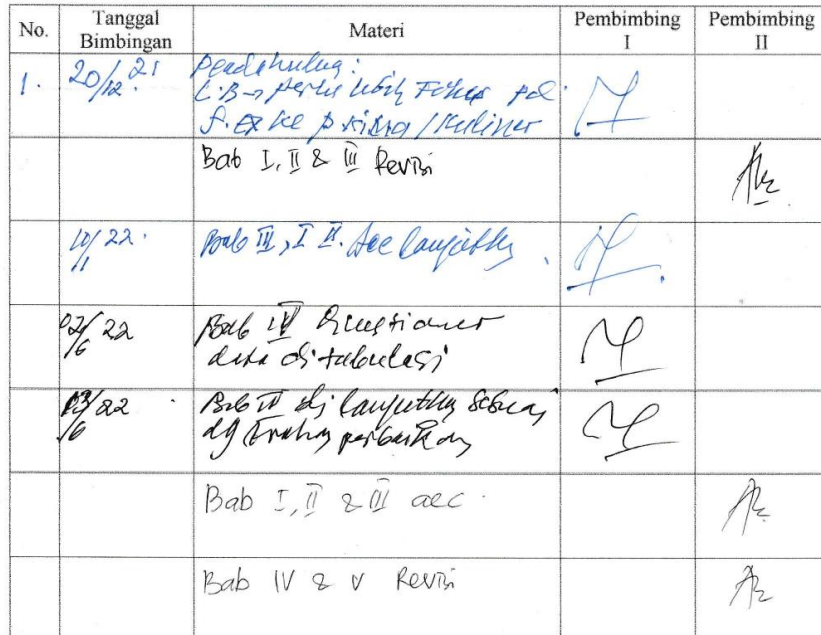 No. Tanggal Bimbingan Materi Pembimbing I Pembimbing II
1. 20/12 21 Pendahuluan:
L.B → perlu lebih Fokus
/ Kuliner
Bab I, II & III Revisi
10/1 22. Bab III, I II. Acc lanjutkan
02/6 22 Bab IV Questioner
data ditabulasi
03/6 22 Bab lanjutkan sesuai
dg perbaikan
Bab I, II & III acc.
Bab IV & V Revisi